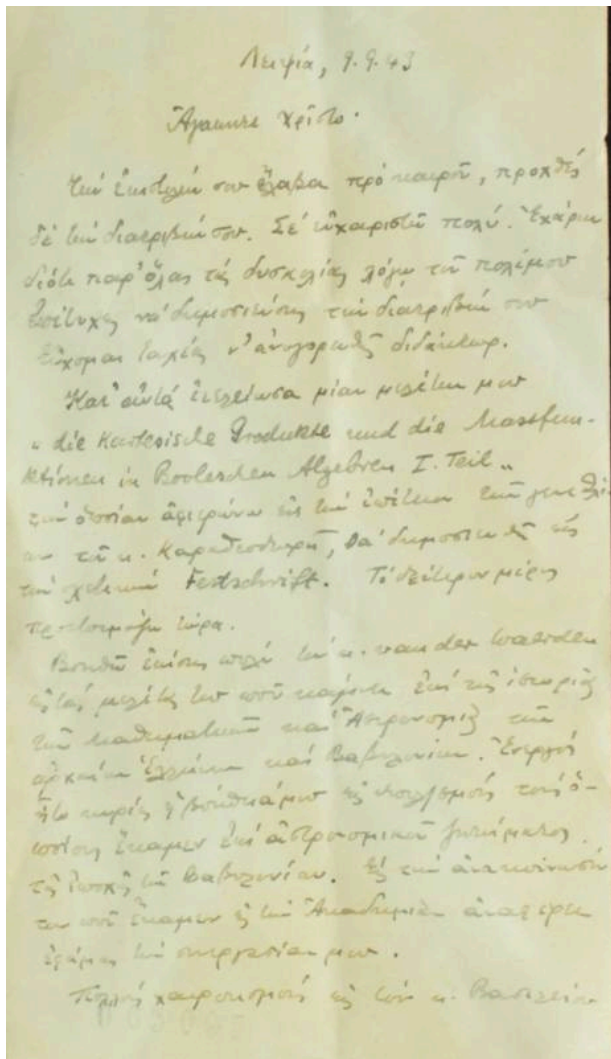 Λειψία, 9.9.43
Ἀγαπητὲ Χρῖστο.
Τὴν ἐπιστολήν σου ἔλαβα πρὸ καιροῦ, προχθὲς
δὲ τὴν διατριβήν σου. Σὲ εὐχαριστῶ πολύ. Ἐχάρην
διότι παρ' ὅλας τὰς δυσκολίας λόγῳ τοῦ πολέμου
ἐπέτυχες νὰ δημοσιεύσῃς τὴν διατριβήν σου
Εὔχομαι ταχέως ν' ἀναγορευθῇς διδάκτωρ.
Κατ' αὐτὰς ἐτελείωσα μίαν μελέτην μου
„die Kartesische Produkte und die Massfun-
ktionen in Booleschen Algebren I. Teil„
τὴν ὁποίαν ἀφιερώνω εἰς τὴν ἐπέτειον τῶν γενεθλί-
ων τοῦ κ. Καραθεοδωρῆ, θὰ δημοσιευθῇ εἰς
τὴν σχετικὴν Festschrift. Τὸ δεύτερον μέρος
προετοιμάζω τώρα.
Βοηθῶ ἐπίσης πολὺ τὸν κ. van der Waerden
εἰς τὰς μελέτας του ποὺ κάμνει ἐπὶ τῆς ἱστορίας
τῶν Μαθηματικῶν καὶ Ἀστρονομίας τῶν
ἀρχαίων Ἑλλήνων καὶ Βαβυλωνίων.
ἡ βοήθειά μου εἰς ὑπολογισμοὺς τοὺς ὁ-
ποίους ἔκαμεν ἐπὶ ἀστρονομικοῦ ζητήματος
τῆς ἐποχῆς τῶν Βαβυλωνίων. Εἰς τὴν ἀνακοίνωσίν
του ποὺ ἔκαμεν εἰς τὴν Ἀκαδημίαν ἀναφέρει
τὴν συνεργασίαν μου.
Πολλοὺς χαιρετισμοὺς εἰς τὸν κ. Βασιλείου